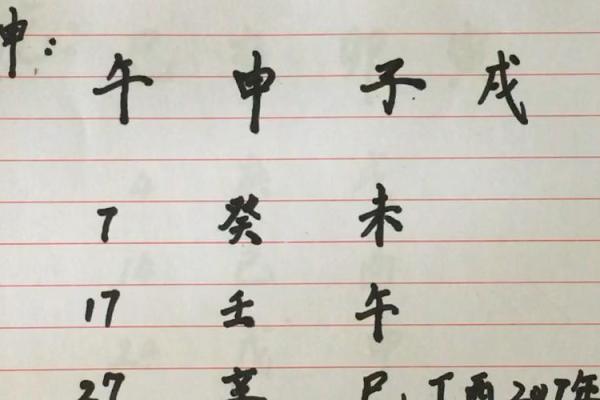 申：
午 申 子 戌
7 癸 未
17 壬 午
27 丁酉2017年